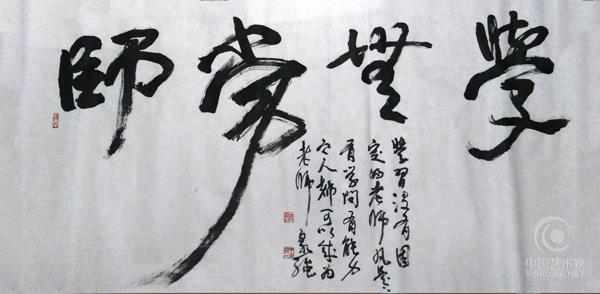 學無常師
學習没有固
定的老师凡是
有学问有能力
之人都可以成为
老师
中国艺术家
YISHUJIA.NET